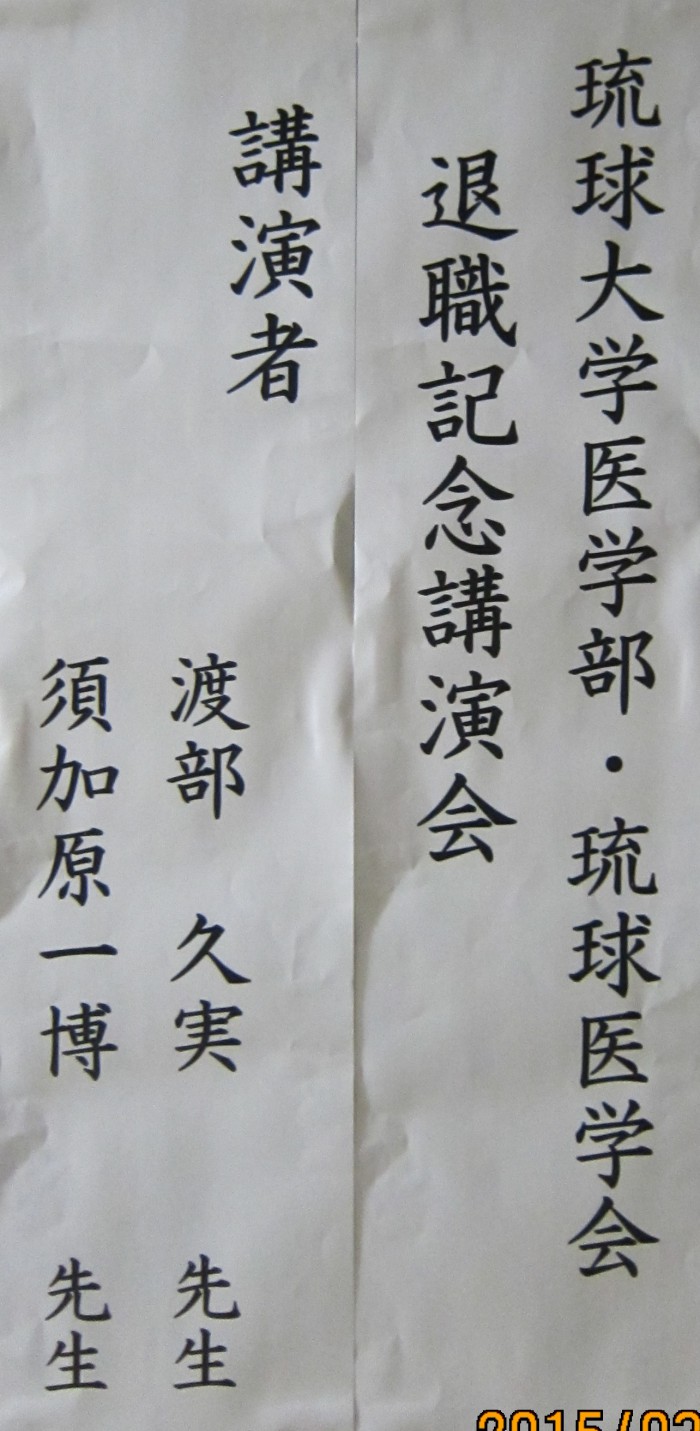 琉球大学医学部・琉球医学会
退職記念講演会
講演者
渡部 久実 先生
須加原一博 先生
2015/02